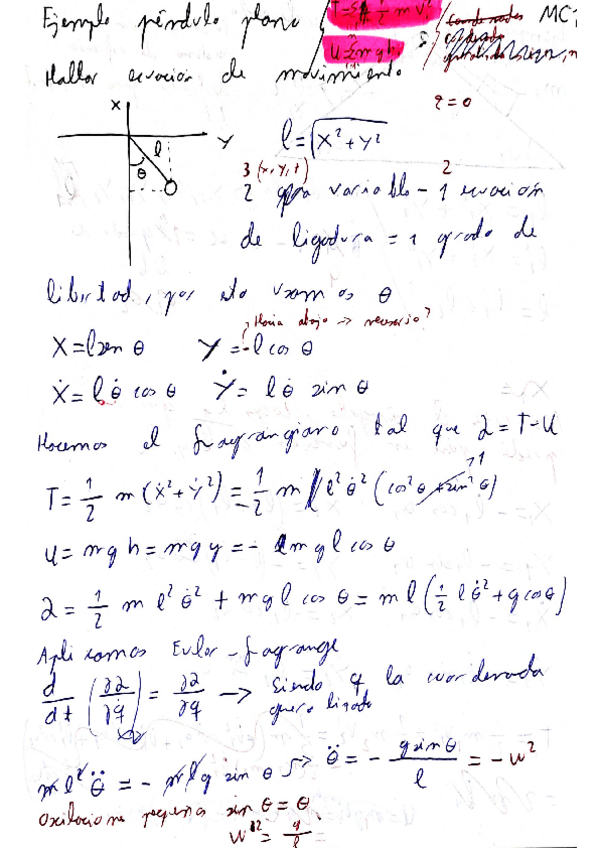 Ejemplo péndulo plano
T = 1/2 m v²
U = mgh
MC
Hallar ecuación de movimiento
z = 0
X
Y
l
θ
l = √(X² + Y²)
3 (x, y, t)
2
2 variable - 1 ecuación
de ligadura = 1 grado de
libertad, por esto usamos θ
Hacia abajo → necesario?
X = l sen θ Y = -l cos θ
Ẋ = l θ̇ cos θ Ẏ = l θ̇ sin θ
Hacemos el Lagrangiano tal que L = T - U
T = 1/2 m (ẋ² + ẏ²) = 1/2 m l² θ̇² (cos² θ + sin² θ) 1
U = mgh = mgy = - mgl cos θ
L = 1/2 m l² θ̇² + mgl cos θ = ml (1/2 l θ̇² + g cos θ)
Aplicamos Euler-Lagrange
d/dt (∂L/∂q̇) = ∂L/∂q → Siendo q la coordenada
generalizada
m l² θ̈ = - m l g sin θ → θ̈ = - g sin θ / l = - w²
Oscilaciones pequeñas sin θ = θ
w² = g/l =